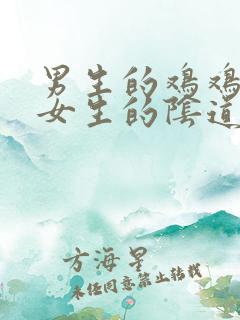 男生的鸡鸡
女生的阴道
方海星
未经同意禁止转载